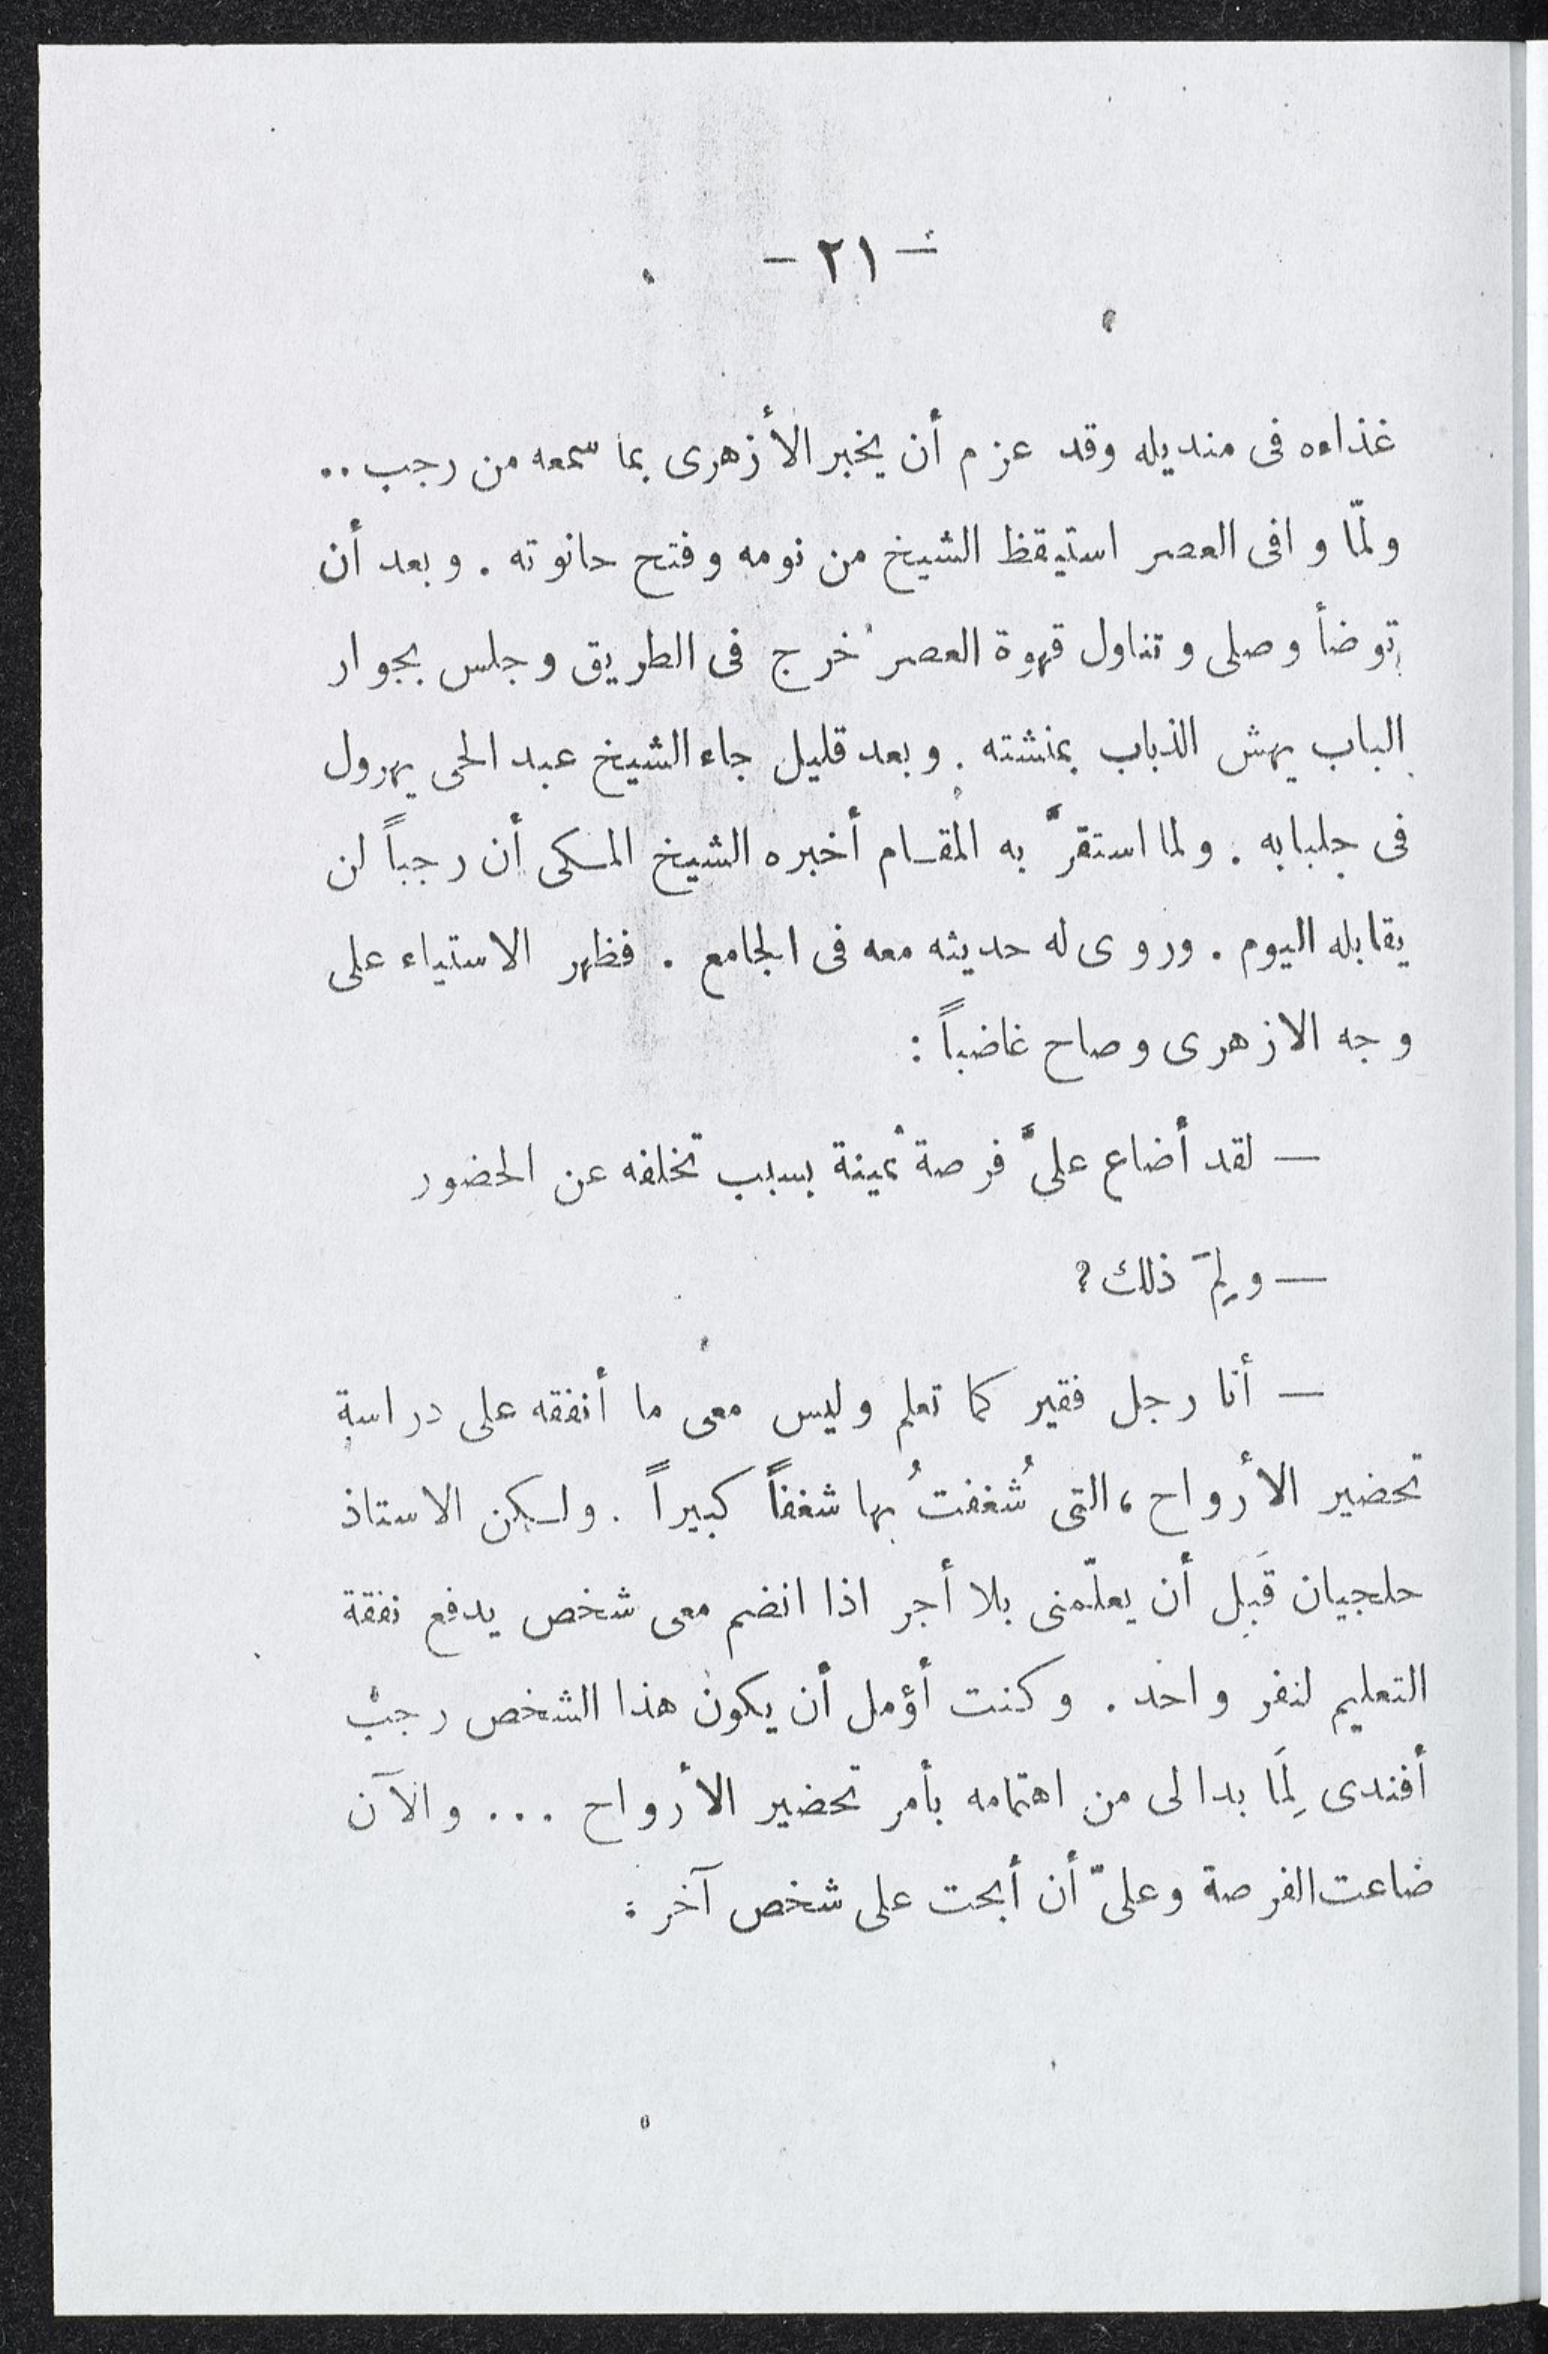 — ٢١ —
غذاءه فى منديله وقد عزم أن يخبر الأزهرى بما سمعه من رجب ..
ولمّا وافى العصر استيقظ الشيخ من نومه وفتح حانوته . وبعد أن
توضأ وصلى وتناول قهوة العصر خرج فى الطريق وجلس بجوار
الباب يهش الذباب بمنشته . وبعد قليل جاء الشيخ عبد الحى يهرول
فى جلبابه . ولما استقرَّ به المقام أخبره الشيخ المكى أن رجباً لن
يقابله اليوم . وروى له حديثه معه فى الجامع . فظهر الاستياء على
وجه الازهرى وصاح غاضباً :
— لقد أضاع علىَّ فرصة ثمينة بسبب تخلفه عن الحضور
— ولِمَ ذلك ؟
— أنا رجل فقير كما تعلم وليس معى ما أنفقه على دراسة
تحضير الأرواح ، التى شُغفتُ بها شغفاً كبيراً . ولكن الاستاذ
حلجيان قَبِل أن يعلّمنى بلا أجر اذا انضم معى شخص يدفع نفقة
التعليم لنفر واحد . وكنت أؤمل أن يكون هذا الشخص رجب
أفندى لِمَا بدا لى من اهتمامه بأمر تحضير الأرواح ... والآن
ضاعت الفرصة وعلىّ أن أبحث على شخص آخر :